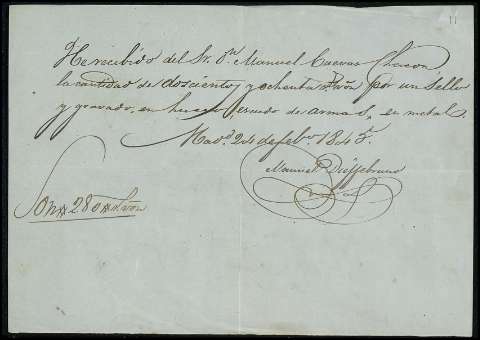 11
He recibido del Sr. Dn. Manuel Cuevas Chacon
la cantidad de doscientos y ochenta rs. von por un Sello
y gravado, en hueco, escudo de armas, en metal.
Mad.d 24 de feb.o 1845.
Manuel
Son # 280 # rs. von